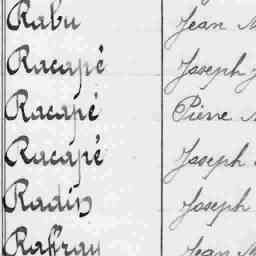 Rabu Jean M
Racapé Joseph J
Racapé Pierre M
Racapé Joseph
Radin Joseph
Raffray Jean M